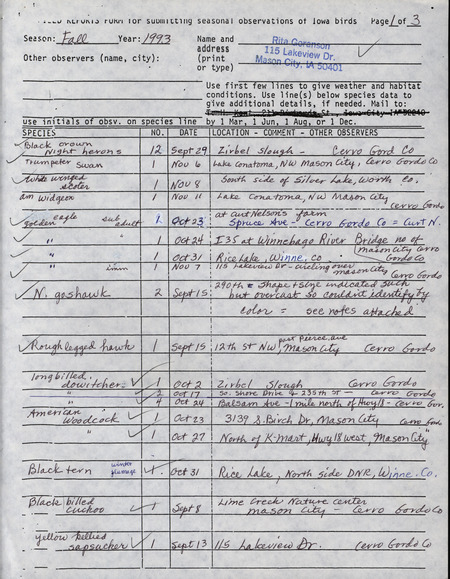 FIELD REPORTS FORM for submitting seasonal observations of Iowa birds Page 1 of 3
Season: Fall Year: 1993 Name and address (print or type) Rita Goranson
115 Lakeview Dr.
Mason City, IA 50401
Other observers (name, city):
Use first few lines to give weather and habitat
conditions. Use line(s) below species data to
give additional details, if needed. Mail to:
use initials of obsv. on species line by 1 Mar, 1 Jun, 1 Aug, or 1 Dec.
SPECIES NO. DATE LOCATION - COMMENT - OTHER OBSERVERS
Black crown
Night herons 12 Sept 29 Zirbel Slough - Cerro Gord Co
Trumpeter Swan 1 Nov 6 Lake Conatoma, NW Mason City, Cerro Gordo Co
White winged
scoter 1 Nov 8 South side of Silver Lake, Worth Co.
am widgeon 1 Nov 11 Lake Conatoma, NW Mason City
Cerro Gordo
golden eagle sub adult 1 Oct 23 at Curt Nelson's farm
Spruce Ave - Cerro Gordo Co = Curt N.
" " 1 Oct 24 I 35 at Winnebago River Bridge no of
Mason City Cerro Gordo
" 1 Oct 31 Rice Lake, Winne. co
" Imm 1 Nov 7 115 Lakeview Dr - circling over
Mason City Cerro Gordo
N. goshawk 2 Sept 15 290th = Shape + size indicated such
but overcast so couldnt identify by
color = see notes attached
Rough legged hawk 1 Sept 15 12th St NW, past Pierce ave Mason City Cerro Gordo
long billed
dowitcher 1 Oct 2 Zirbel Slough Cerro Gordo
" 2 Oct 17 So. Shore Drive & 235th St - Cerro Gordo
" 4 Oct 24 Balsam Ave - 1 mile north of Hwy 18 - Cerro Gor.
American
Woodcock 1 Oct 23 3139 S. Birch Dr, Mason City Cerro Gordo
" 1 Oct 27 North of K-mart, Hwy 18 west, Mason City
Black tern winter plumage 1 Oct 31 Rice Lake, North side DNR, Winne. Co.
Black billed
cuckoo 1 Sept 8 Lime Creek Nature Center
Mason City - Cerro Gordo Co
yellow bellied
sapsucker 1 Sept 13 115 Lakeview Dr. Cerro Gordo Co